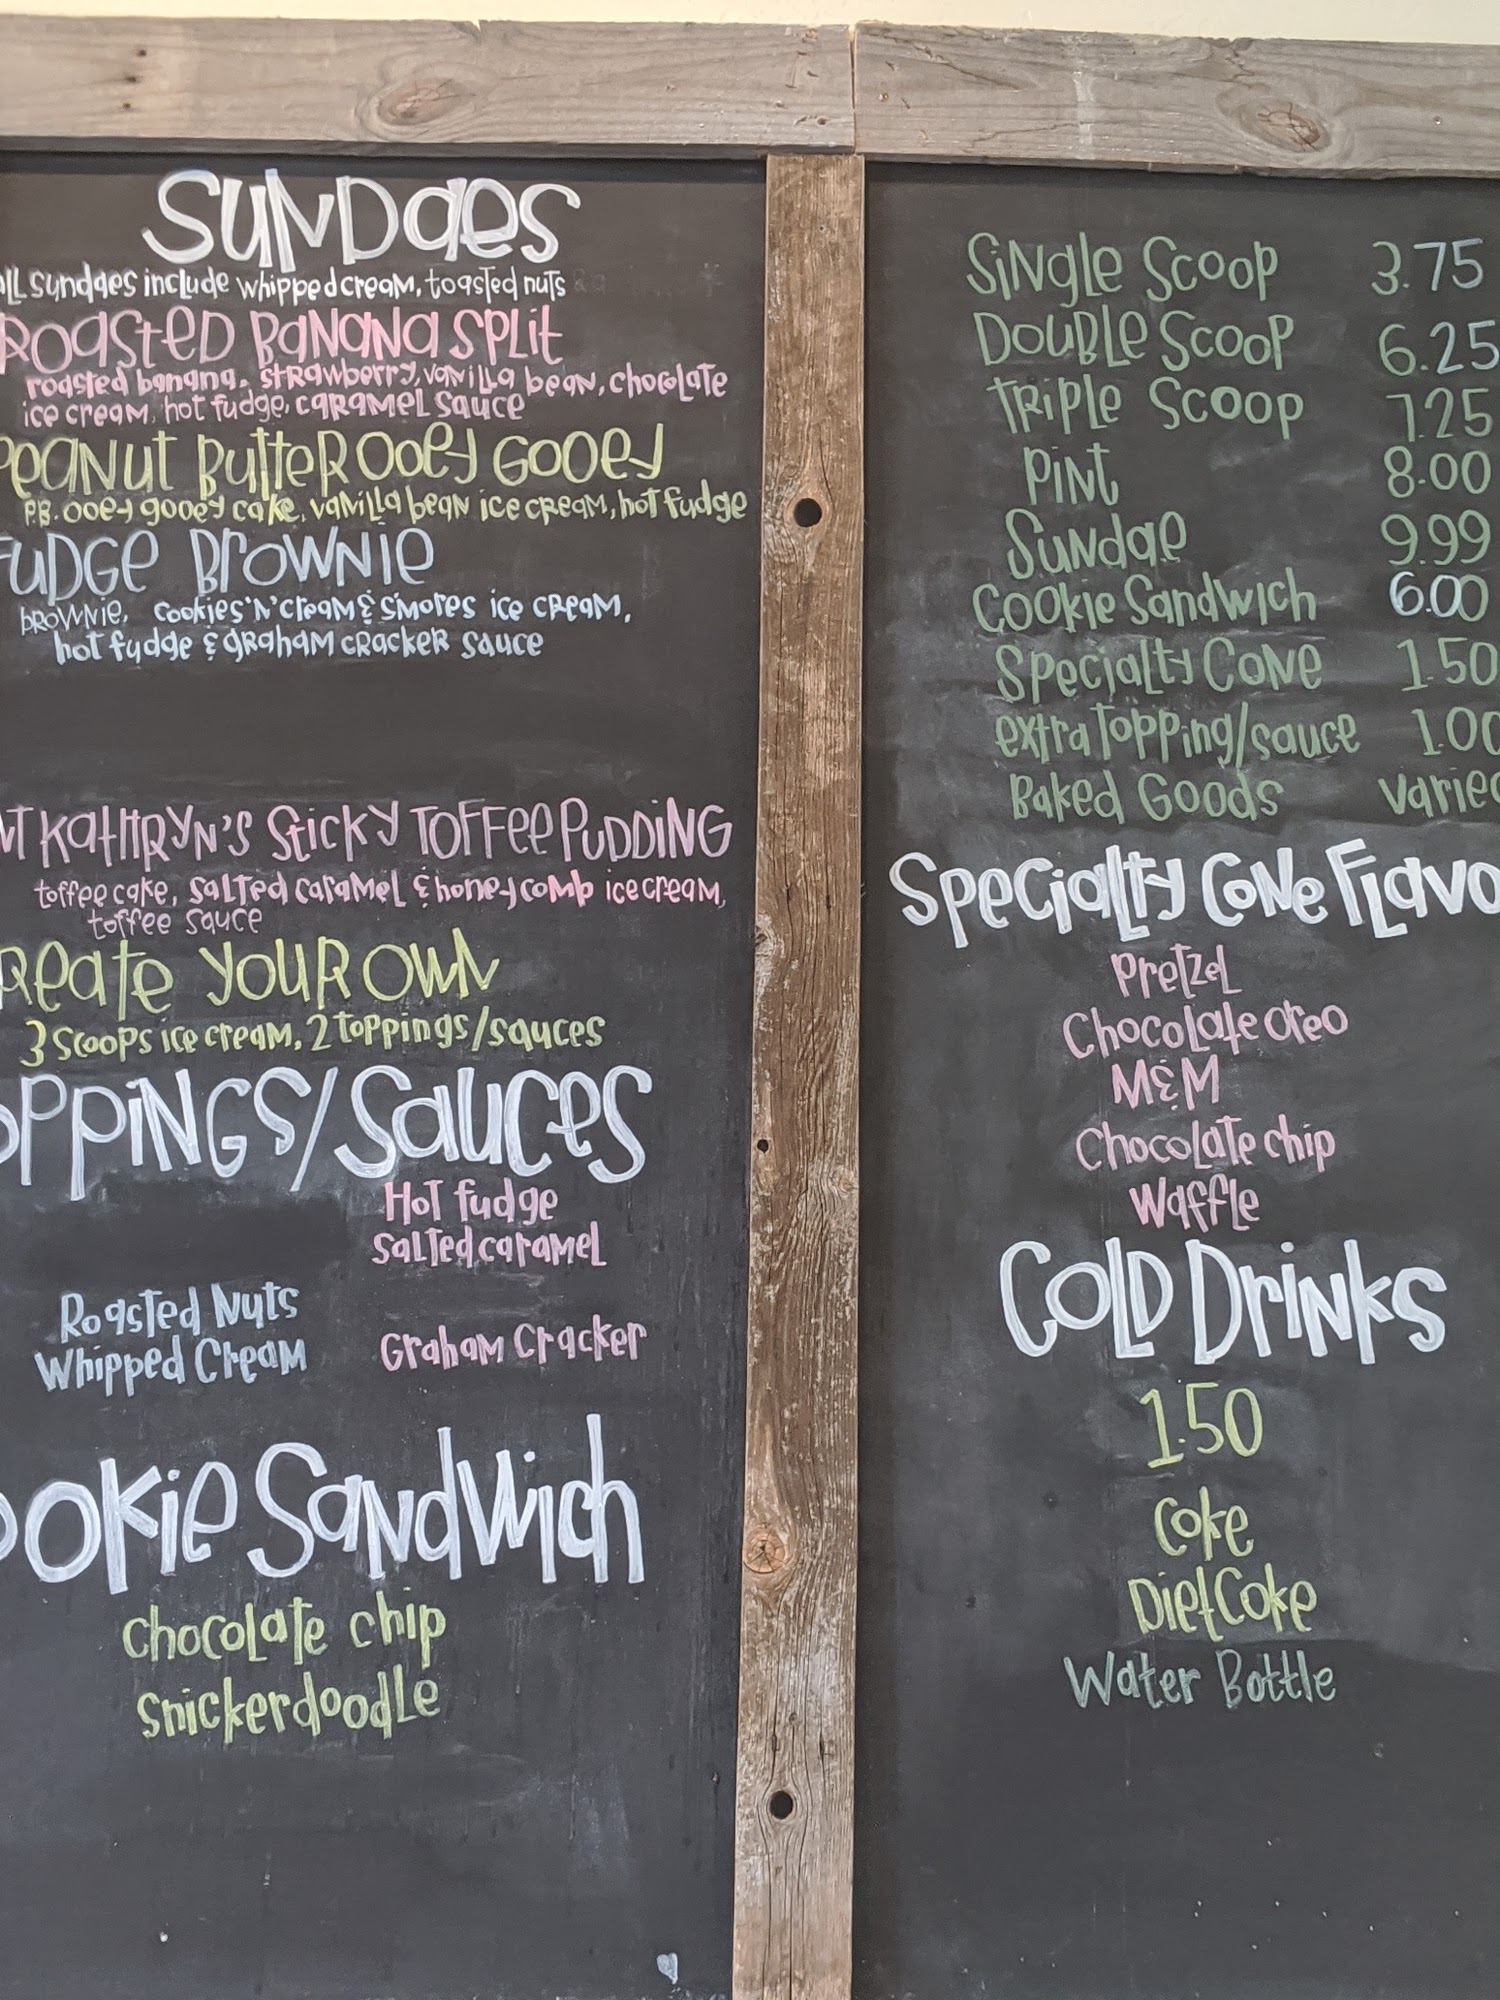 SUNDAES
ALL SUNDAES INCLUDE WHIPPED CREAM, TOASTED NUTS
ROASTED BANANA SPLIT
ROASTED BANANA, STRAWBERRY, VANILLA BEAN, CHOCOLATE
ICE CREAM, HOT FUDGE, CARAMEL SAUCE
PEANUT BUTTER OOEY GOOEY
P.B. OOEY GOOEY CAKE, VANILLA BEAN ICE CREAM, HOT FUDGE
FUDGE BROWNIE
BROWNIE, COOKIES 'N' CREAM & S'MORES ICE CREAM,
HOT FUDGE & GRAHAM CRACKER SAUCE
KATHRYN'S STICKY TOFFEE PUDDING
TOFFEE CAKE, SALTED CARAMEL & HONEYCOMB ICE CREAM,
TOFFEE SAUCE
REATE YOUR OWN
3 SCOOPS ICE CREAM, 2 TOPPINGS/SAUCES
OPPINGS/SAUCES
HOT FUDGE
SALTED CARAMEL
ROASTED NUTS
WHIPPED CREAM
GRAHAM CRACKER
OOKIE SANDWICH
CHOCOLATE CHIP
SNICKERDOODLE
SINGLE SCOOP 3.75
DOUBLE SCOOP 6.25
TRIPLE SCOOP 7.25
PINT 8.00
SUNDAE 9.99
COOKIE SANDWICH 6.00
SPECIALTY CONE 1.50
EXTRA TOPPING/SAUCE 1.00
BAKED GOODS VARIED
SPECIALTY CONE FLAVO
PRETZEL
CHOCOLATE OREO
M&M
CHOCOLATE CHIP
WAFFLE
COLD DRINKS
1.50
COKE
DIET COKE
WATER BOTTLE